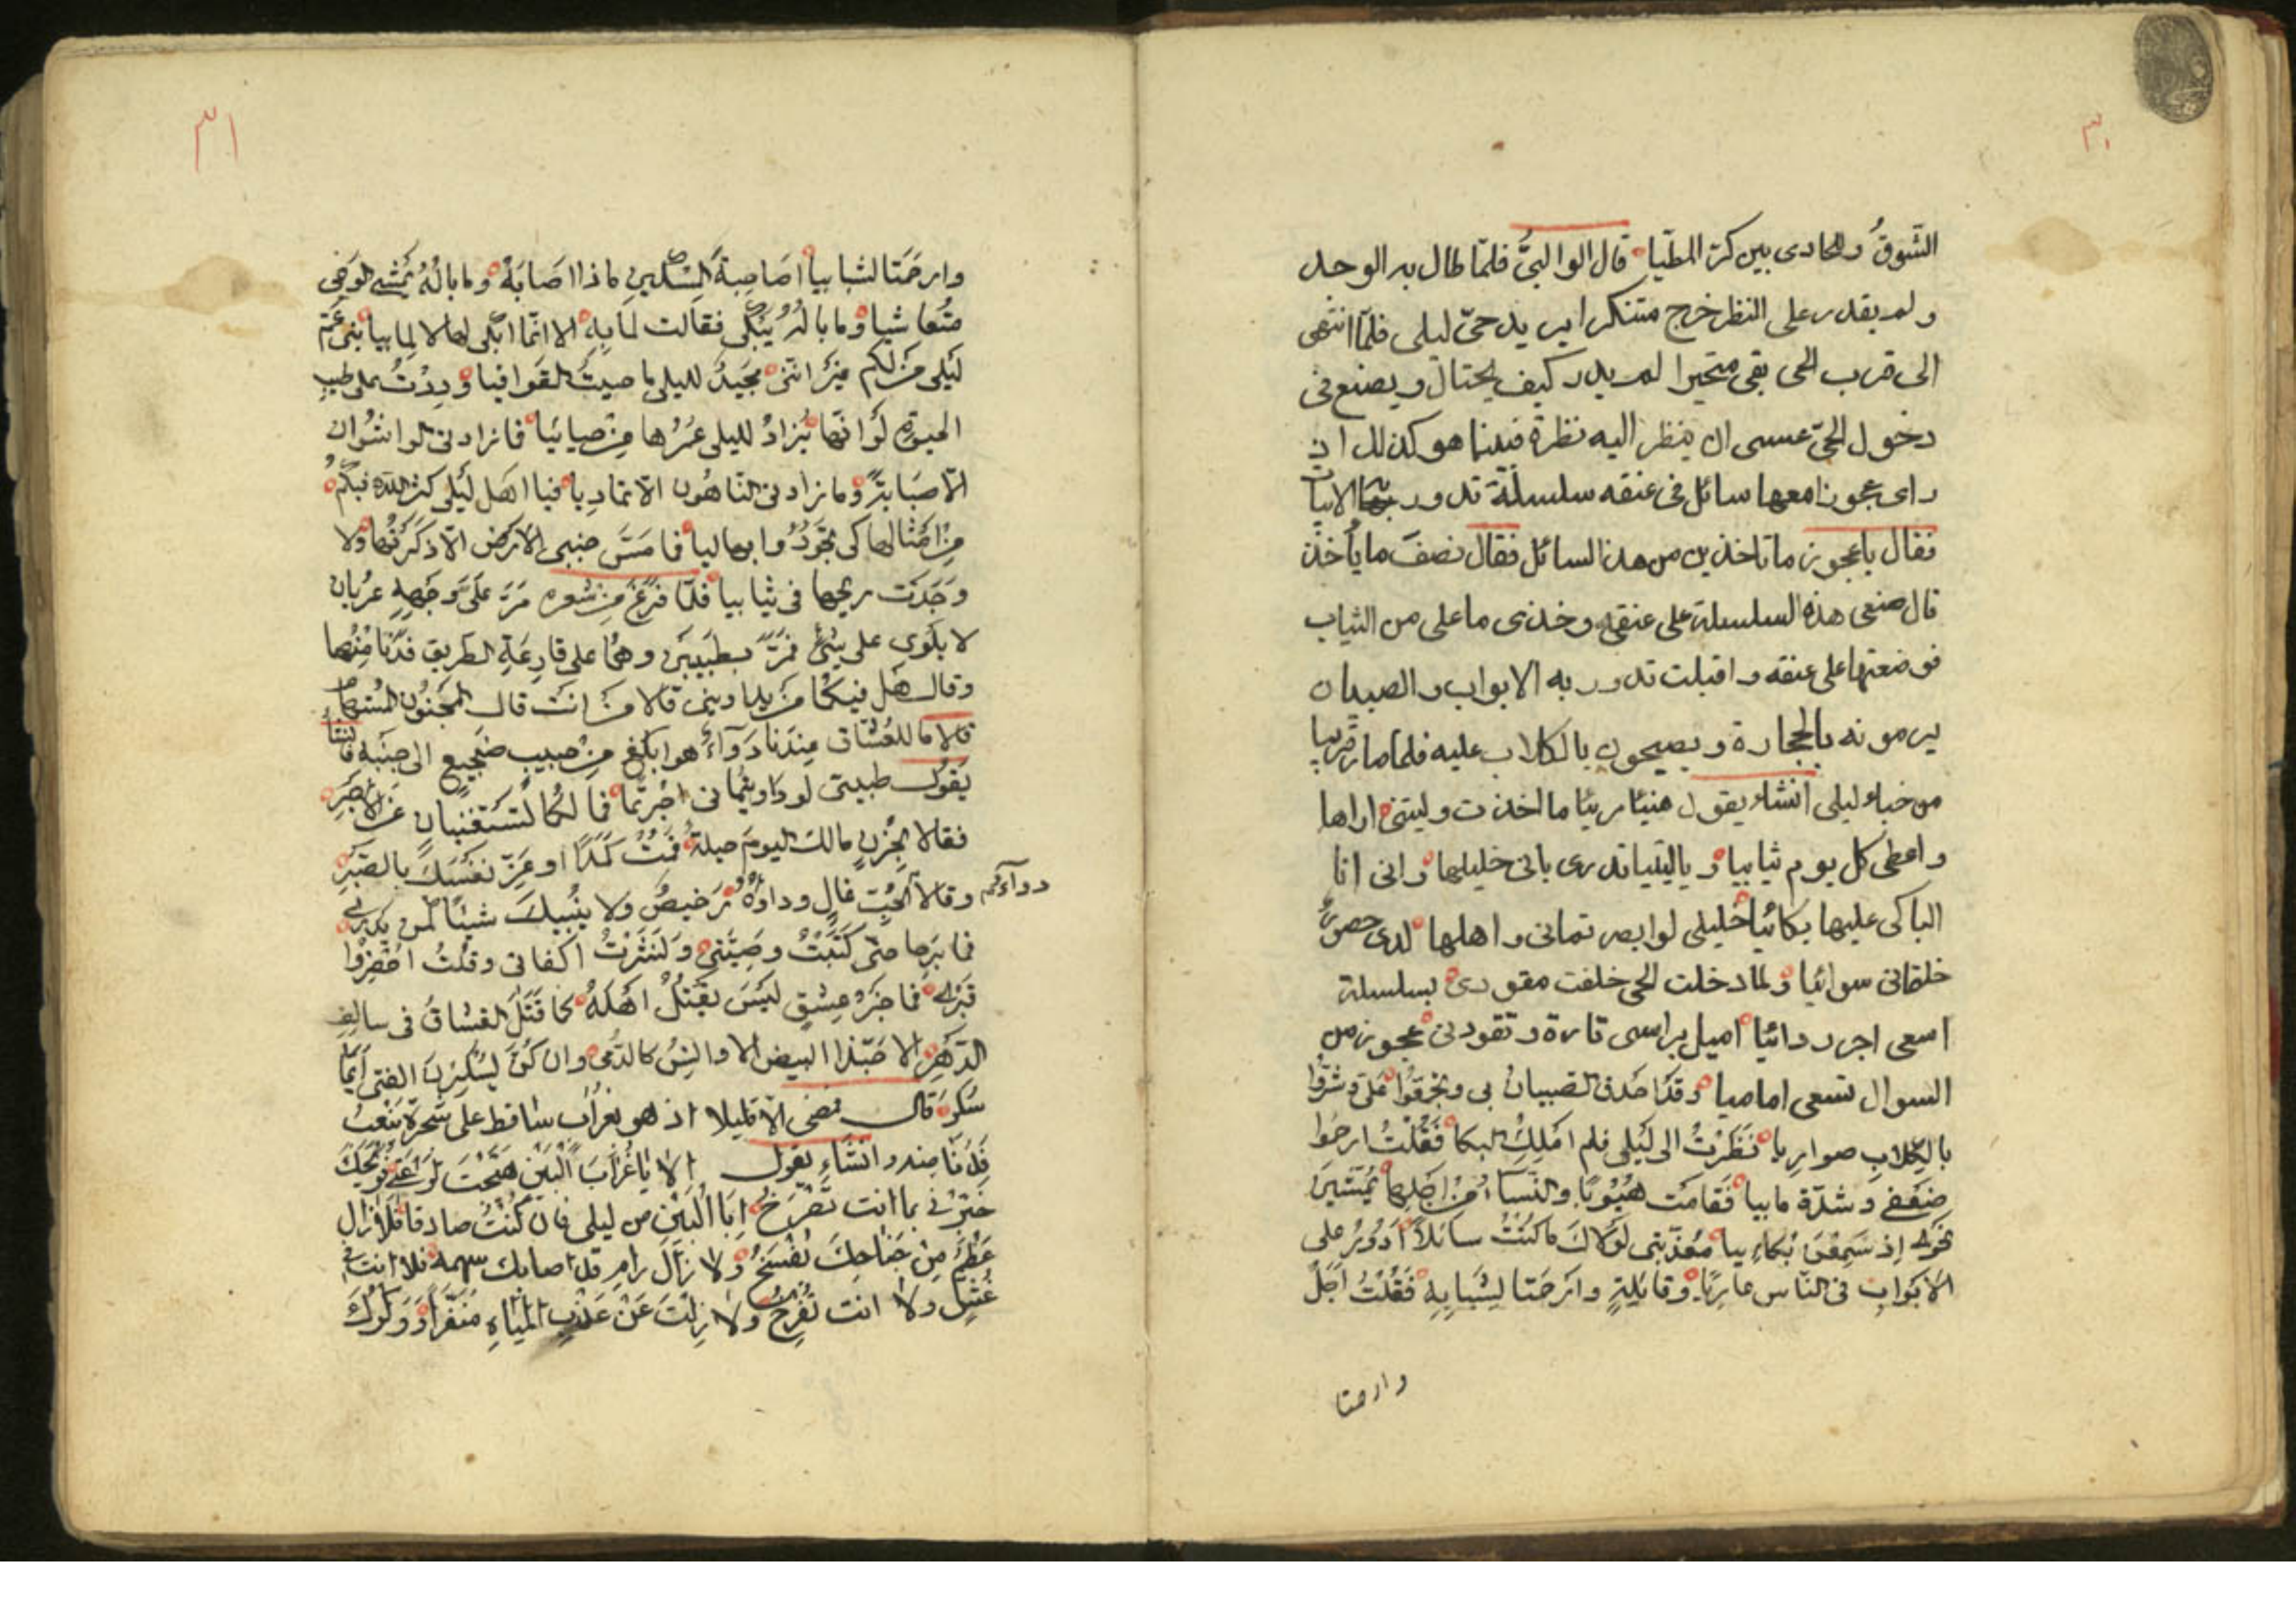 ٣٠
الشوقُ والحادى بين كرّ المطيا قال الوالبىُّ فلمّا طال به الوجد
ولم يقدر على النظر خرج متنكرا يريد حىّ ليلى فلمّا انتهى
الى قرب الحى بقى متحيرا لم يدر كيف يحتال ويصنع فى
دخول الحىّ عسى ان ينظر اليه نظرة فبينا هو كذلك اذ
راى عجوزا معها سائل فى عنقه سلسلة تدور بها الابيات
فقال يا عجوز ما تاخذين من هذا السائل فقال نصف ما يأخذ
قال ضعى هذه السلسلة على عنقى وخذى ما على من الثياب
فوضعتها على عنقه واقبلت تدور به الابواب والصبيان
يرمونه بالحجارة ويصيحون بالكلاب عليه فلما صار قريبا
من خباء ليلى انشاء يقول هنيئا مريئا ما اخذت وليتنى اراها
واعطى كل يوم ثيابيا ويا ليتنا تدرى بانى خليلها وانى انا
الباكى عليها بكائيا خليلى لو ابصرتمانى واهلها لدى حضورٌ
خلقانى سوائيا ولما دخلت الحى خلفت مقودى بسلسلة
اسعى اجر ردائيا اميل براسى تارة وتقودنى عجوز من
السوال تسعى اماميا وقد احدق الصبيان بى وتخرقوا على وشدّوا
بالكلاب ضواريا نظرتُ الى ليلى فلم املكِ البكا فَقُلْتُ ارحموا
ضعفى وشدّة مابيا فقامت هُبُوبًا والنّسا من اجلها يمشين
نحوى اذ سمعن بُكاءيا معذّبتى لولاك ما كنتُ سائلاً ادُورُ على
الابواب فى النّاس عاريًا وقايلةٍ وارحمتا لشبابه فقلتُ اجل
وارحمتا
٣١
وارحمتا لشبابيا اصاحبة المسكين ماذا اصابه وما باله يمشى الوجى
متعاشيا وما باله يبكى فقالت لمابه الا انّما ابكى لها لا لما بيا بنى عمّ
ليلى من لكم غير اننى مجيدٌ لليلى ما حييتُ القوافيا وددتُ على طيب
الحيوة لو انّها يُزادُ لليلى عمرُها من حياتيا فما زادنى الواشُون
الّا صبابةً وما زادنى النّاهُون الّا تماديا فيا اهل ليلى كثّر الله فيكمُ
من امثالها كى تجودُوا بها ليا فما مَسّ جنبى الارض الّا ذكرتُها ولا
وجدت ريحها فى ثيابيا فلمّا فرغ من شعره مَرّ على وجهه عريان
لا يلوى على شئٍ فمرّ بطبيبين وهما على قارعة الطريق فدنا منهما
وقال هل فيكما من يداوينى قالا من انت قال المجنون المستهام
قالا ما للعشاق عندنا دواءٌ هو ابلغ من حبيب ضجيع الى جنبه فانشاء
يقول طبيبى لو داويتمانى اجرتما فما لكما تستغنيان عن الاجر
فقالا بحزنٍ مالك اليوم حيلة فمُتْ كمدًا او عزّ نفسك بالصّبر
وقالا الحُبّ غالٍ وداؤُه رخيصٌ ولا ينبيك شيئا كمن يدرى
دواءكم
فما برحا حتى كتبتُ وصيّتى ونشرتُ اكفانى وقلتُ احفروا
قبرى فما خيرُ عشقٍ ليس يقتلُ اهله كما قتل العشاق فى سالف
الدّهر الا حبّذا البيض الاوانس كالدُّمى وان كنّ يسكرن الفتى ايّما
سُكر قال فمضى الّا قليلا اذ هو بغراب ساقط على شجرة ينعبُ
فدنا منه وانشاء يقول الا يا غراب البين هيّجت لوعتى فويحك
خبّرنى بما انت تصرخُ ابا البين من ليلى فان كنتَ صادقا فلا زال
عظمٌ من جناحك يفسخُ ولا زال رامٍ قد اصابك سهمه فلا انت فى
عُشٍّ ولا انت تفرخُ ولا زلتَ عن عذب المياه منفّرا ووكرك